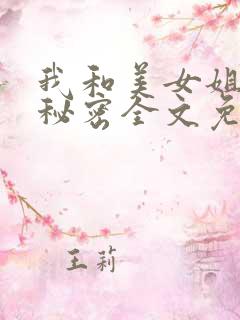 我和美女姐
秘密全文免
王莉